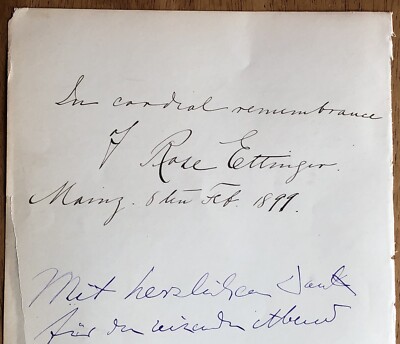 In cordial remembrance
of
Rose Ettinger.
Mainz. 8ten Feb. 1899.
Mit herzlichen Dank
für den Abend